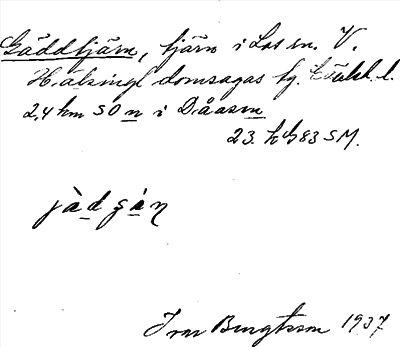 Gäddtjärn, tjärn i Los sn. V.
Hälsingl. domsagas tg. l.
2,4 km SO n i Dåasen
23. h G 83 SM.
jàdʂàn
Bengtsson 1937